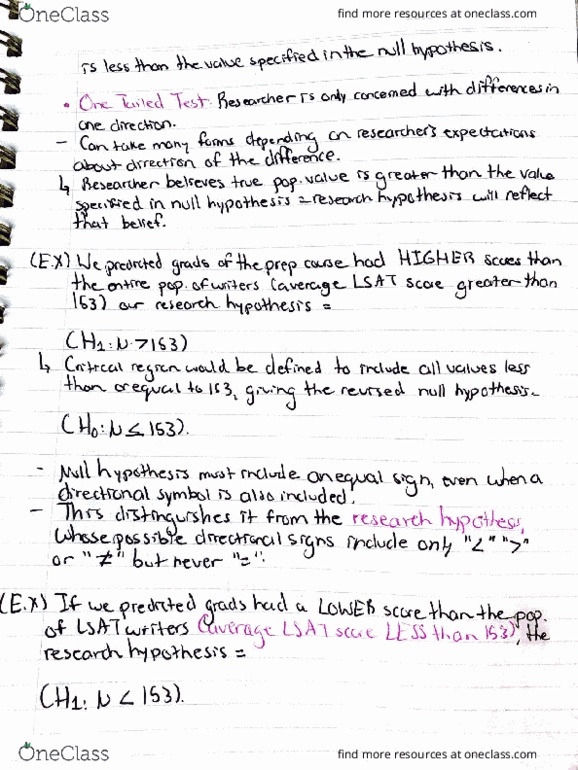 OneClass
find more resources at oneclass.com
is less than the value specified in the null hypothesis.
• One Tailed Test: Researcher is only concerned with differences in
one direction.
- Can take many forms depending on researcher's expectations
about direction of the difference.
↳ Researcher believes true pop. value is greater than the value
specified in null hypothesis = research hypothesis will reflect
that belief.
(EX) We predicted grads of the prep course had HIGHER scores than
the entire pop. of writers (average LSAT score greater than
153) our research hypothesis =
(H1: μ > 153)
↳ Critical region would be defined to include all values less
than or equal to 153, giving the revised null hypothesis-
(H0: μ ≤ 153).
- Null hypothesis must include an equal sign, even when a
directional symbol is also included.
- This distinguishes it from the research hypothesis,
whose possible directional signs include only "<" ">"
or "≠" but never "=".
(E.X) If we predicted grads had a LOWER score than the pop.
of LSAT writers (average LSAT score LESS than 153), the
research hypothesis =
(H1: μ < 153).
OneClass
find more resources at oneclass.com